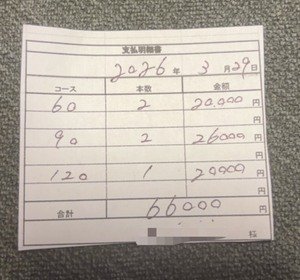 支払明細書
2026年 3月29日
コース 本数 金額
60 2 20.000円
90 2 26000円
120 1 20000円
合計 66000円
様